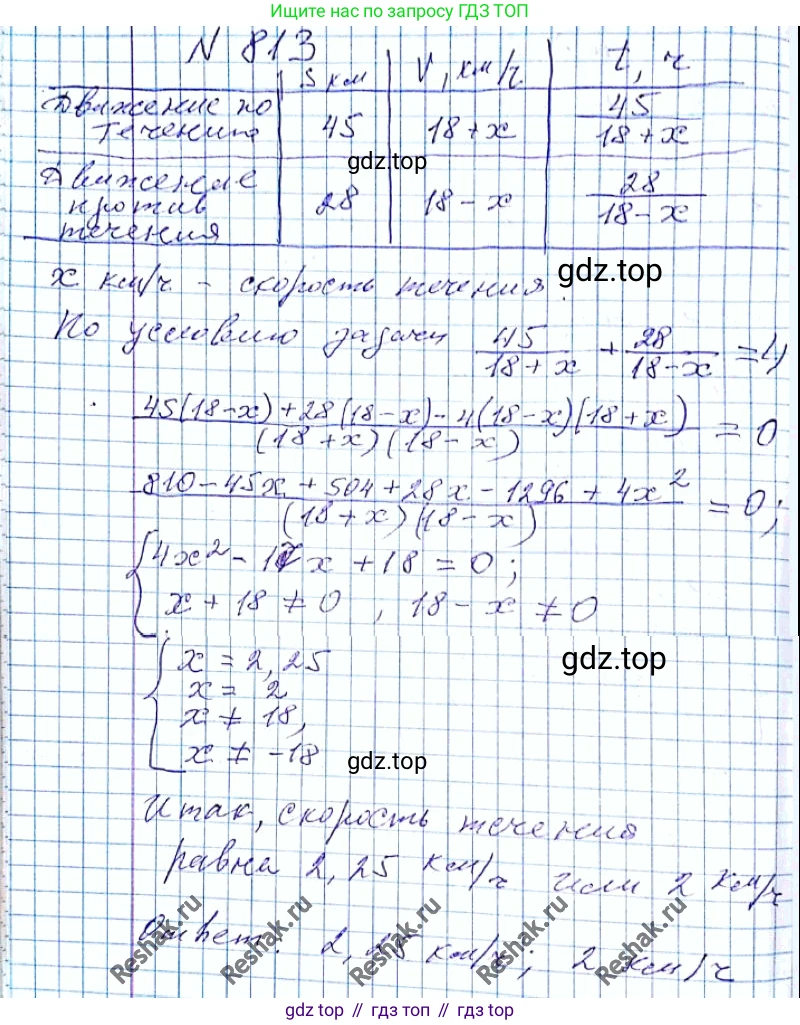 Ищите нас по запросу ГДЗ ТОП
N 813
S км V, км/ч t, ч
Движение по течению 45 18+x 45/(18+x)
gdz.top
Движение против течения 28 18-x 28/(18-x)
x км/ч - скорость течения.
gdz.top
По условию задачи 45/(18+x) + 28/(18-x) = 4
(45(18-x)+28(18-x)-4(18-x)(18+x))/((18+x)(18-x)) = 0
(810-45x+504+28x-1296+4x²)/((18+x)(18-x)) = 0;
4x²-17x+18=0;
x+18≠0, 18-x≠0
x = 2,25
gdz.top
x = 2
x ≠ 18,
x ≠ -18
gdz.top
Итак, скорость течения
равна 2,25 км/ч или 2 км/ч
Ответ: 2,25 км/ч; 2 км/ч
Reshak.ru Reshak.ru Reshak.ru Reshak.ru Reshak.ru
gdz.top // gdz.top // gdz.top